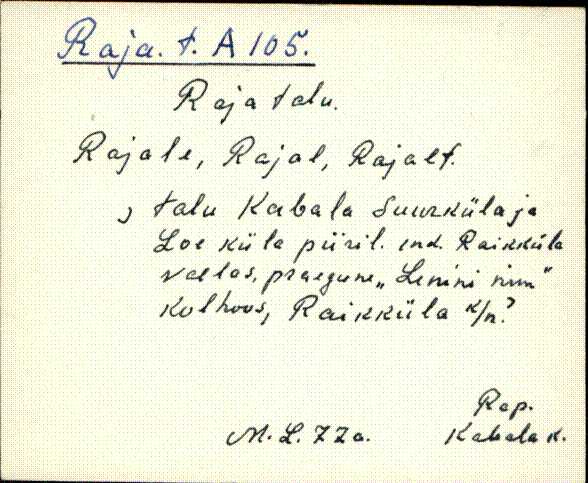 Raja. t. A 105.
Raja talu.
Rajale, Rajal, Rajalt.
, talu Kabala Suurküla ja
Loe küla piiril. end. Raikküla
vallas, praegune „Lenini nim“
kolhoos, Raikküla k/n?
Rap.
M. L. 22a. Kabala k.